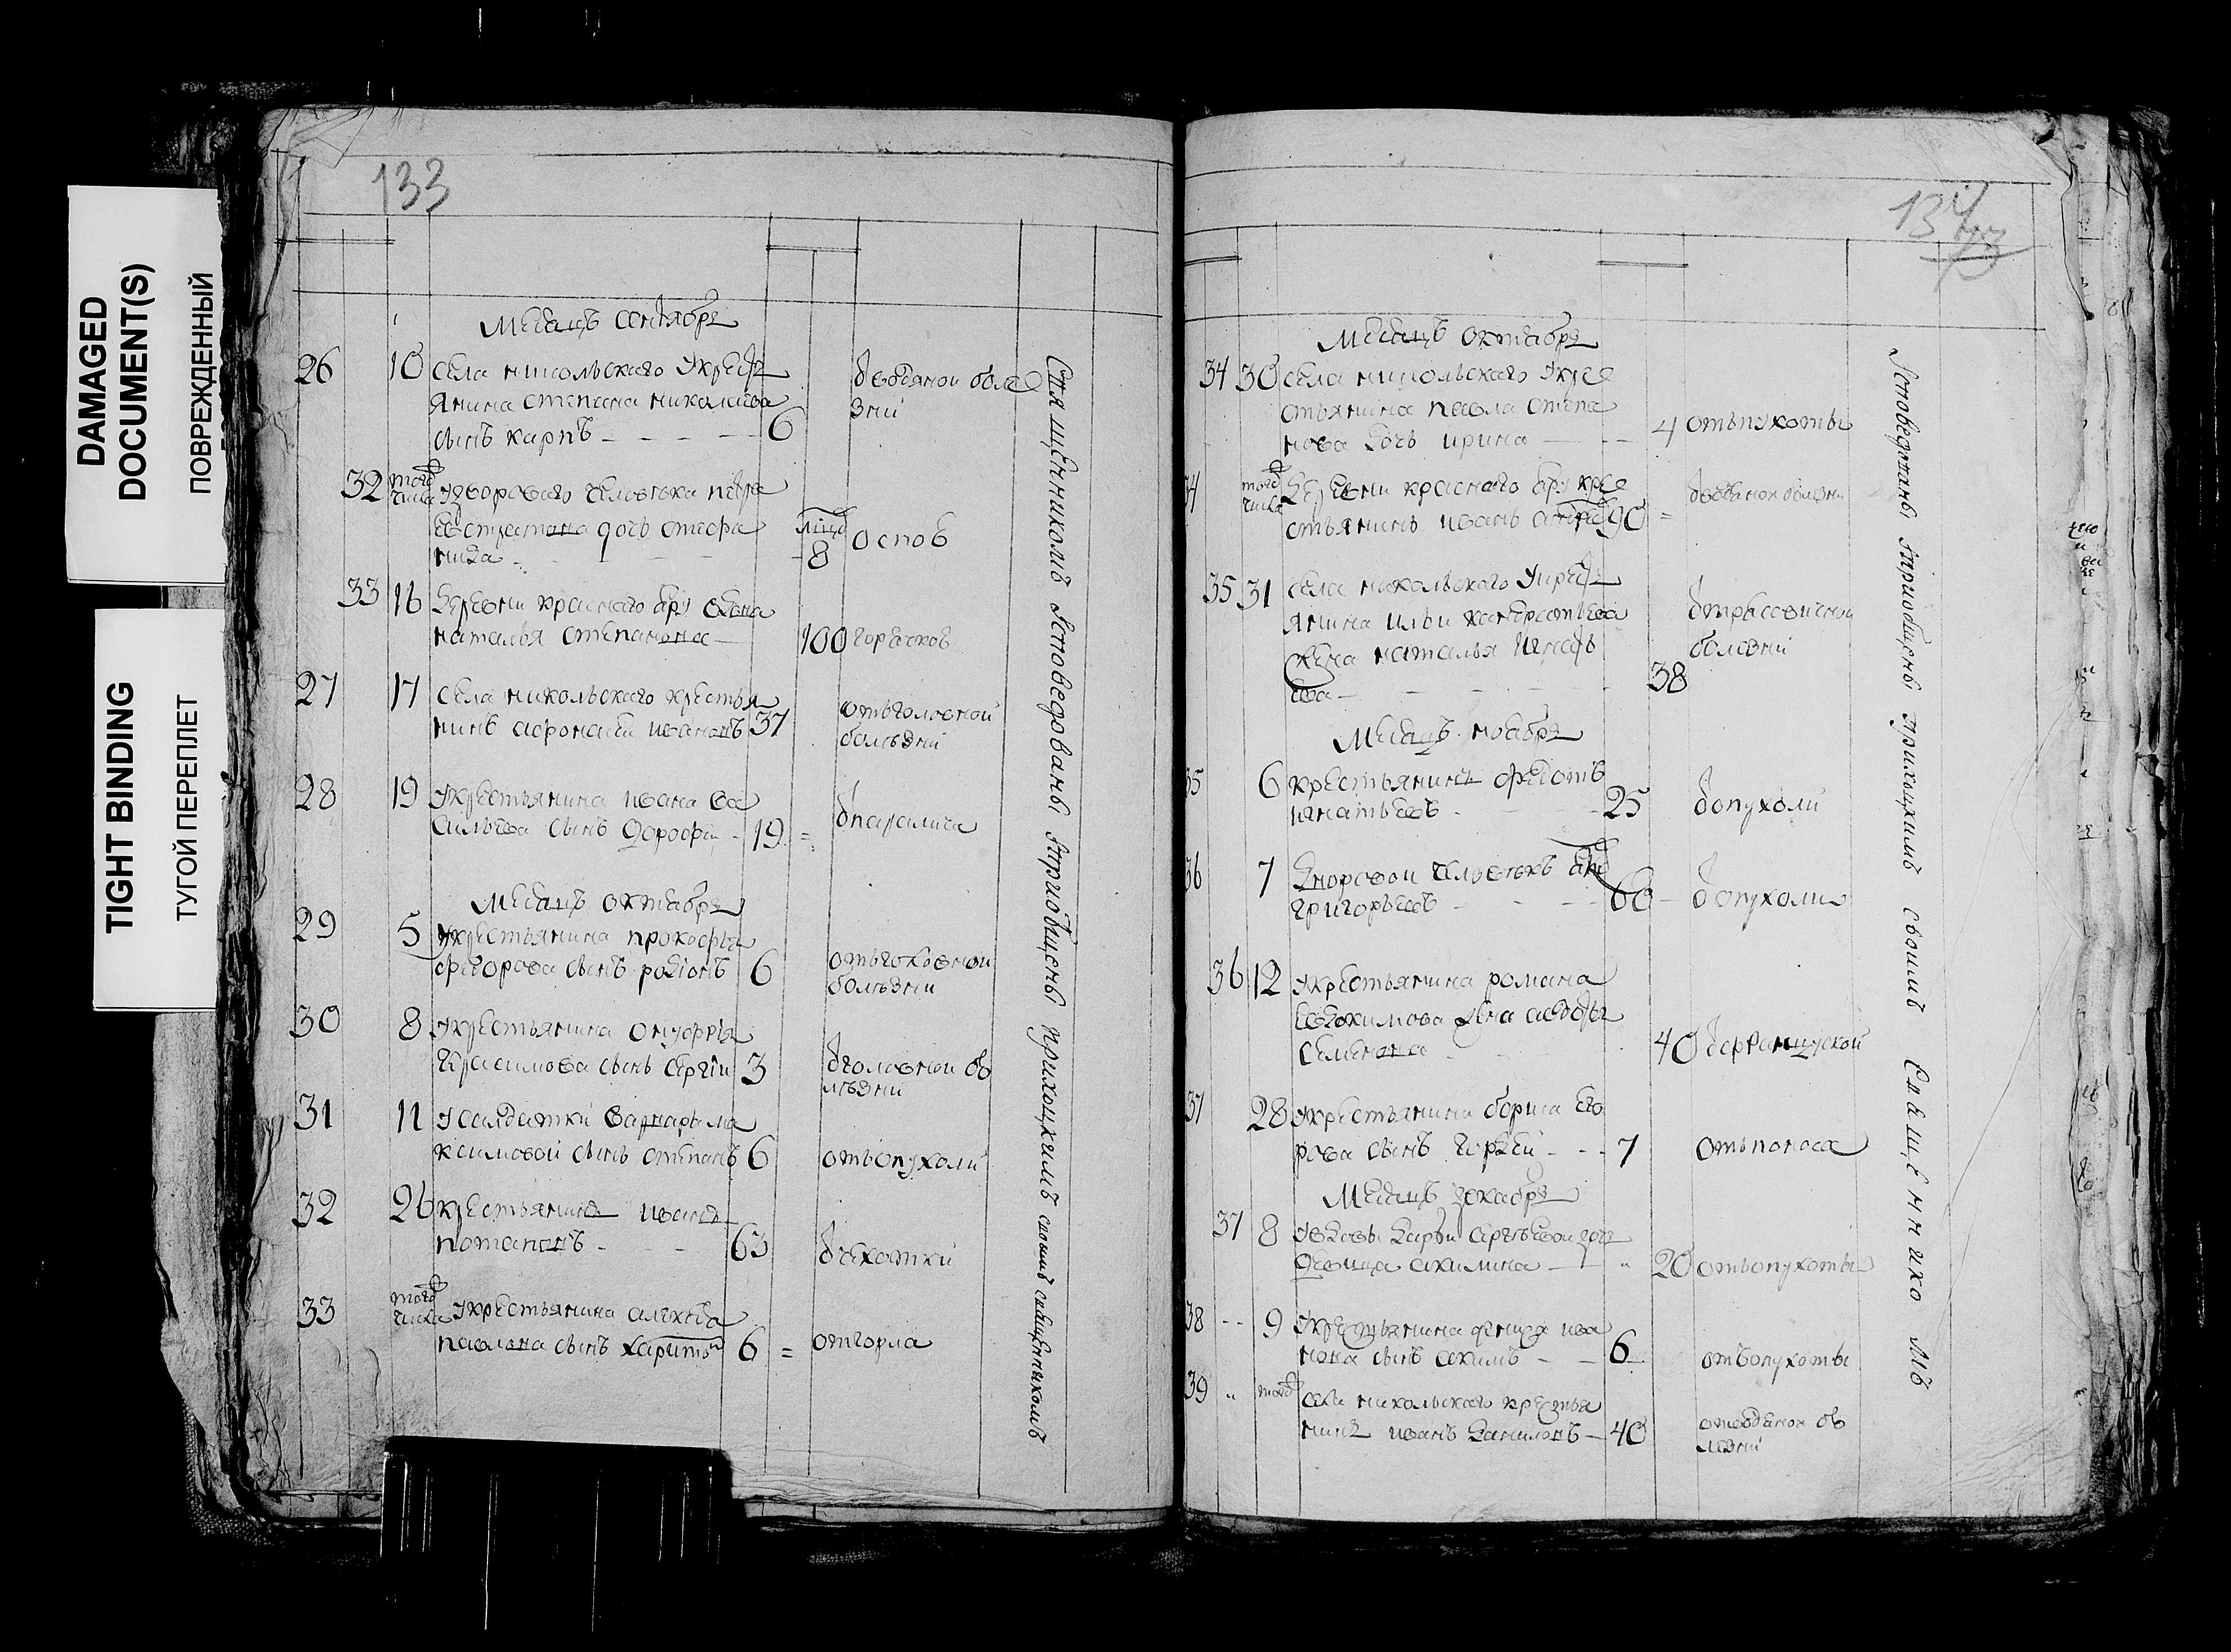 DAMAGED
DOCUMENT(S)
ПОВРЕЖДЕННЫЙ
TIGHT BINDING
ТУГОЙ ПЕРЕПЛЕТ
133
Месецъ сентября
26 10 села никольского у крест
янина степана николаева
сынъ карпъ 6
водяной боле
зни
32 того числа у дворового человека петра
дочь степа
нида 8
оспов
33 16 деревни красного вдова
наталья степановна 100 горячков
27 17 села никольского крестья
нинъ афонасей ивановъ 37
отъ головной
болѣзни
28 19 у крестьянина ивана ва
сильева сынъ дорофей 19 =
паралича
Месецъ октября
29 5 у крестьянина прокофья
федорова сынъ родіонъ 6
отъ головной
болѣзни
30 8 у крестьянина онуфрія
герасимова сынъ сергіи 3
головной бо
лѣзни
31 11 у салдатки варвары ма
ксимовой сынъ степанъ 6 отъ опухоли
32 26 крестьянинъ иванъ
потаповъ 63
чехотки
33 того числа у крестьянина алексея
павлова сынъ харитон 6 = от горла
священникомъ исповедованы и приобщены приходцкимъ своимъ священникомъ
134
73
Месецъ октября
34 30 села никольского у кре
стьянина павла степа
нова дочь ирина 4 отъ пухоты
34 того числа деревни красного кре
стьянинъ иванъ 90 =
водяной болезни
35 31 села никольского у крест
янина ильи кандратьева
жена наталья игнать
ева 38
болезни
Месецъ ноября
35 6 крестьянинъ федотъ
игнатьевъ 25
опухоли
36 7 дворовой человекъ
григорьевъ 60
опухоли
36 12 у крестьянина романа
евдокимова жена авдотья
семеновна 40 француской
37 28 у крестьянина бориса его
рова сынъ гордей 7 отъ поноса
Месецъ декабря
37 8 у вдовы дарьи сергѣевой дочь
девица акилина 20 отъ опухоты
38 9 у крестьянина дениса ива
нова сынъ акимъ 6 отъ опухоты
39 того села никольского крестья
нинъ иванъ даниловъ 40
от водяной бо
лезни
исповеданы и приобщены приходцкимъ своимъ священникомъ